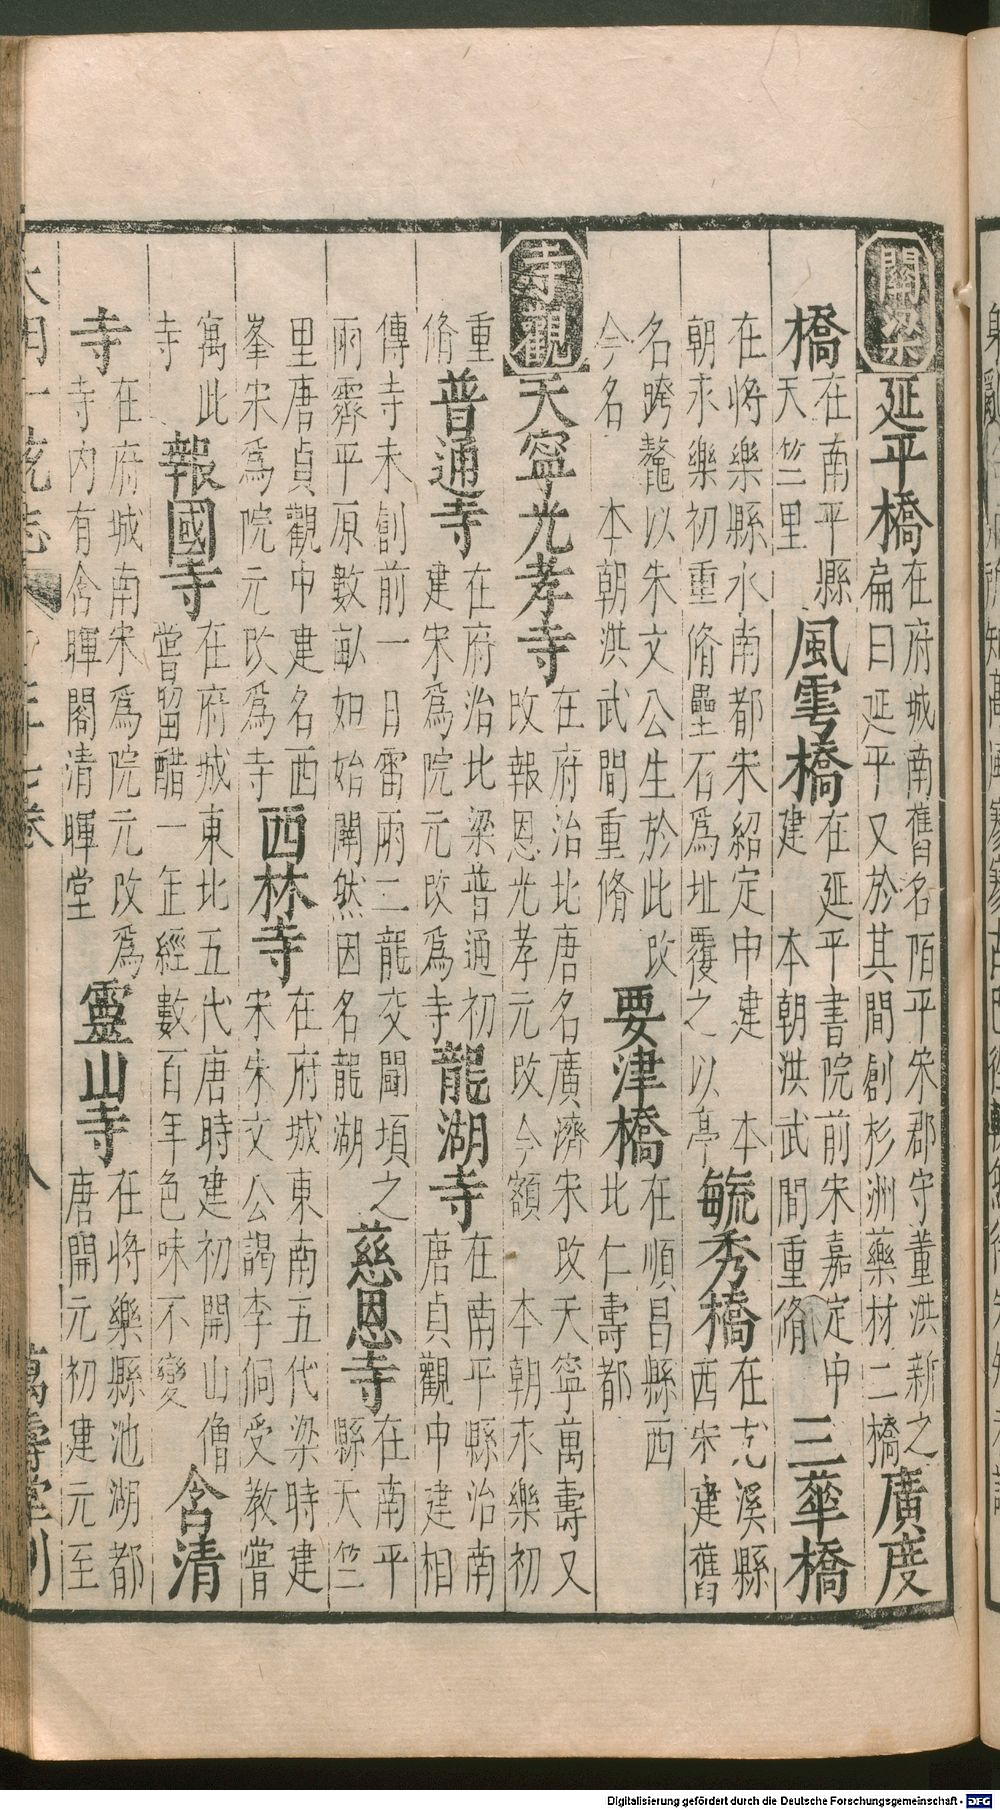 關梁
延平橋
在府城南舊名陌平宋郡守董洪新之
扁曰延平又於其間創杉洲藥材二橋
廣度
橋
在南平縣
天竺里
風雩橋
在延平書院前宋嘉定中
建　本朝洪武間重脩
三華橋
在將樂縣水南都宋紹定中建　本
朝永樂初重脩壘石爲址覆之以亭
毓秀橋
在尤溪縣
西宋建舊
名跨鼇以朱文公生於此改
今名　本朝洪武間重脩
要津橋
在順昌縣西
北仁壽都
寺觀
天寧光孝寺
在府治北唐名廣濟宋改天寧萬壽又
改報恩光孝元改今額　本朝永樂初
重
脩
普通寺
在府治北梁普通初
建宋爲院元改爲寺
龍湖寺
在南平縣治南
唐貞觀中建相
傳寺未創前一日雷雨二龍交鬬頃之
雨霽平原數畝如始闢然因名龍湖
慈恩寺
在南平
縣天竺
里唐貞觀中建名西
峯宋爲院元改爲寺
西林寺
在府城東南五代梁時建
宋朱文公謁李侗受教嘗
寓此
寺
報國寺
在府城東北五代唐時建初開山僧
嘗留醋一缶經數百年色味不變
含清
寺
在府城南宋爲院元改爲
寺內有含暉閣清暉堂
靈山寺
在將樂縣池湖都
唐開元初建元至
大明一統志
七卷
八
萬壽堂刊
Digitalisierung gefördert durch die Deutsche Forschungsgemeinschaft - DFG